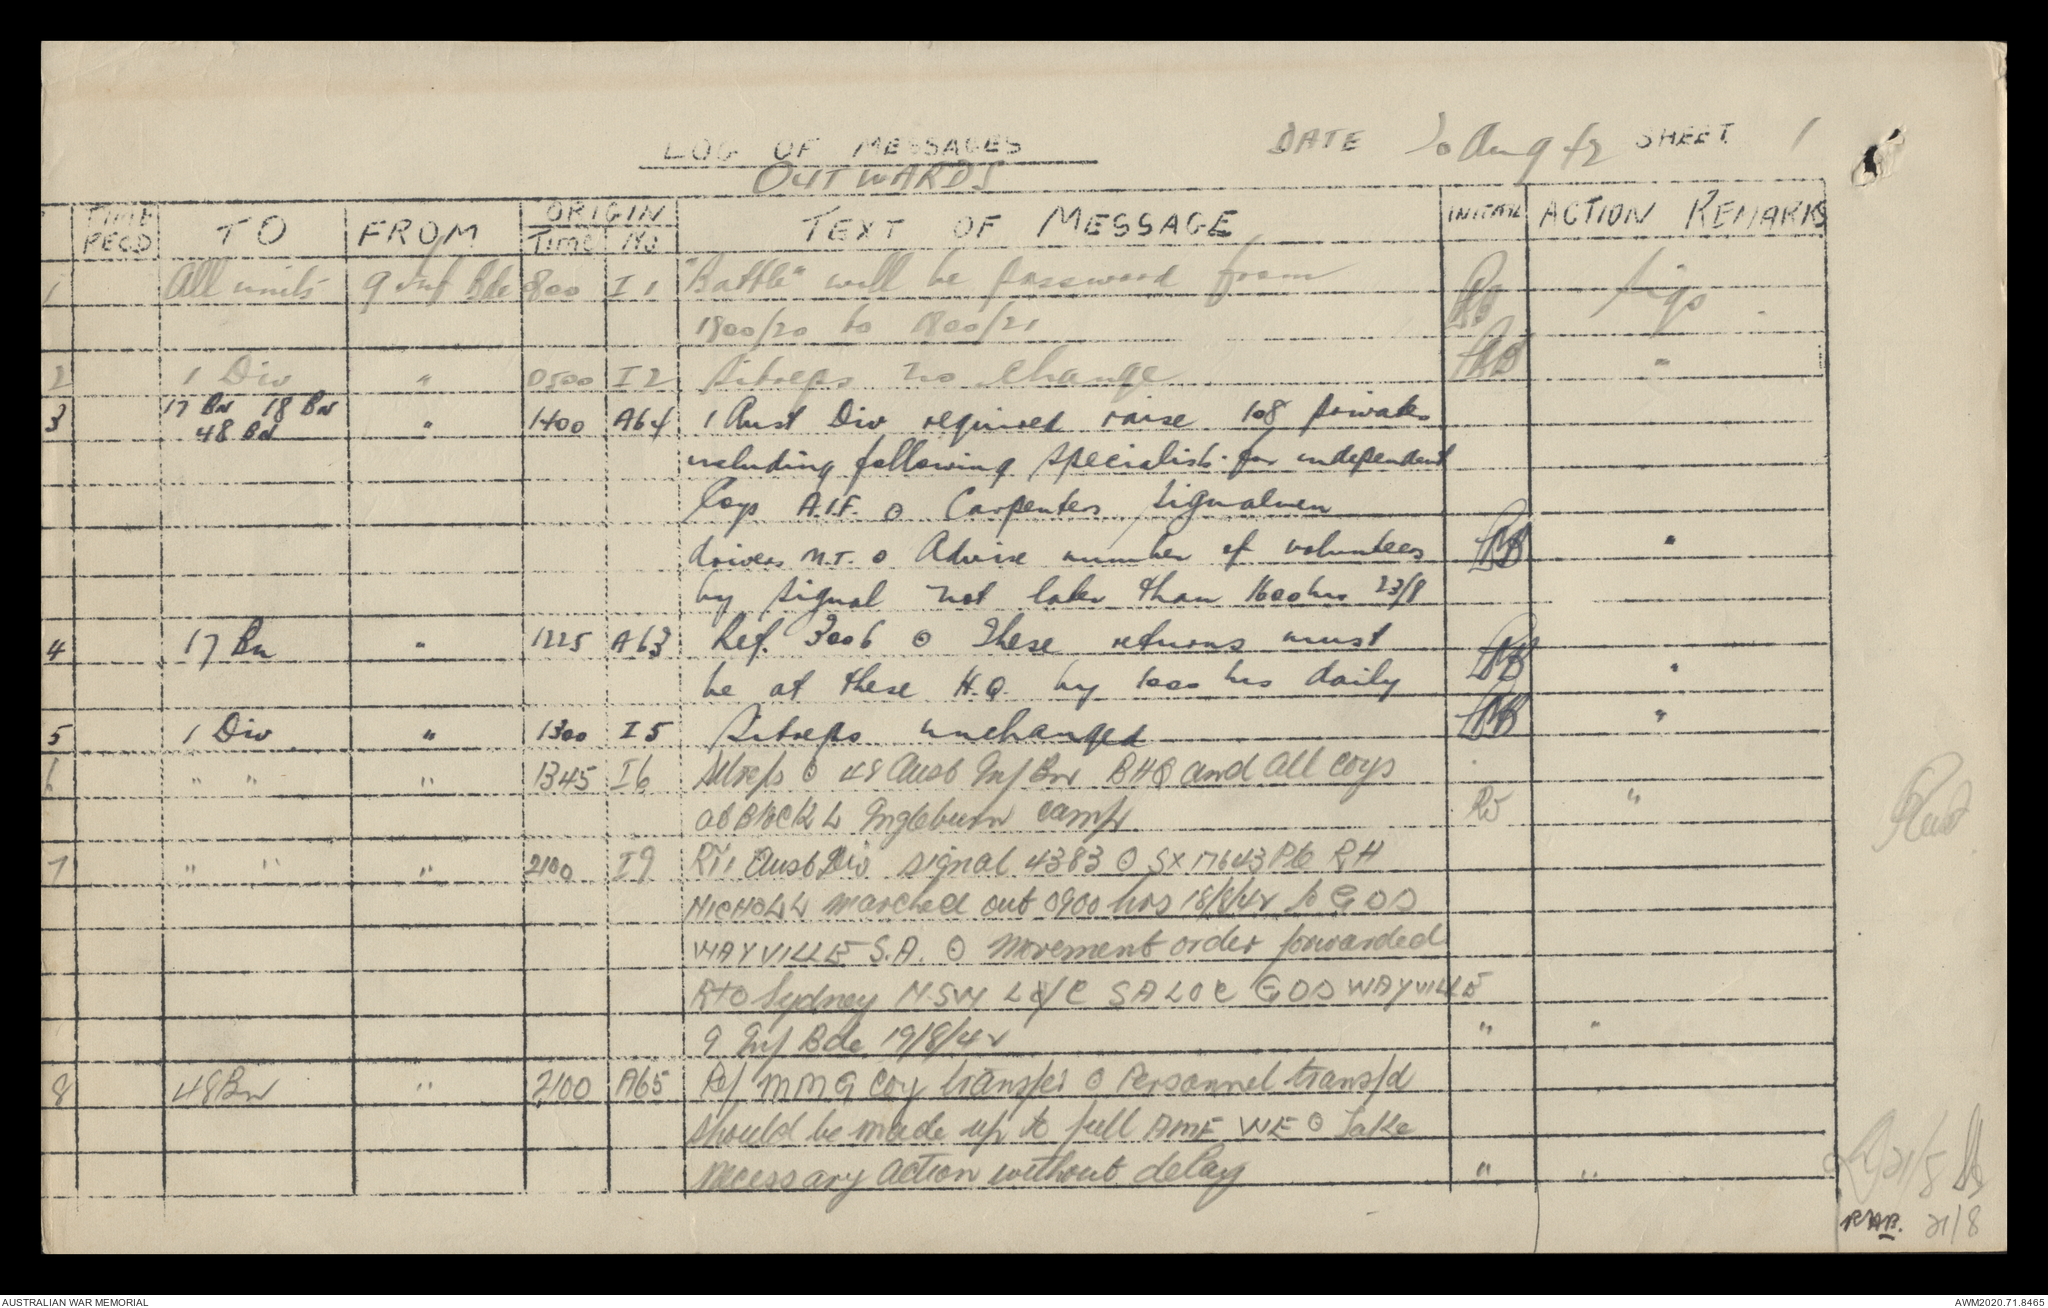 LOG OF MESSAGES
OUTWARDS
DATE 20 Aug 42 SHEET 1
TIME RECD TO FROM ORIGIN TIME No TEXT OF MESSAGE INITIAL ACTION REMARKS
1 All units 9 Inf Bde 0800 I 1 "Battle" will be password from Sigs
1800/20 to 1800/21
2 1 Div " 0500 I 2 Sitreps no change "
3 17 Bn 18 Bn 48 Bn " 1400 A64 1 Aust Div required raise 108 privates
including following specialists for independent
Coys A.I.F. ⊙ Carpenters Signalmen
drivers M.T. ⊙ Advise number of volunteers "
by signal not later than 1600 hrs 23/8
4 17 Bn " 1225 A63 Ref. 3006 ⊙ These returns must
be at these H.Q. by 1000 hrs daily "
5 1 Div " 1300 I 5 Sitreps unchanged "
6 " " " 1345 I6 Sitreps ⊙ 48 Aust Inf Bn BHQ and all coys
at BLOCK L Ingleburn camp "
7 " " " 2100 I9 R 1 Aust Div signal 4383 ⊙ SX17643 Pte R H
NICHOLL marched out 0900 hrs 18/8/42 to GDD
WAYVILLE S.A. ⊙ Movement order forwarded
RTO Sydney N.S.W L of C S A L O C GDD WAYVILLE
9 Inf Bde 19/8/42 " "
8 48 Bn " 2100 A65 Ref MMG coy transfer ⊙ Personnel transfd
should be made up to full AMF WE ⊙ Take
necessary action without delay " "
21/8
RAB. 21/8
AUSTRALIAN WAR MEMORIAL AWM2020.71.8465